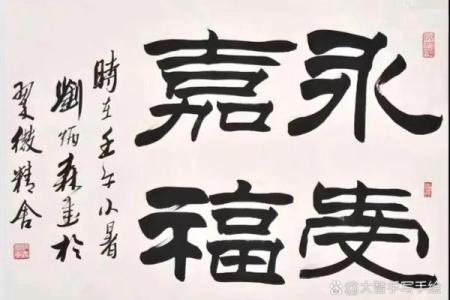 永受
嘉福
時在壬午小暑
劉炳森書於
翠微精舍
@大智手写手绘